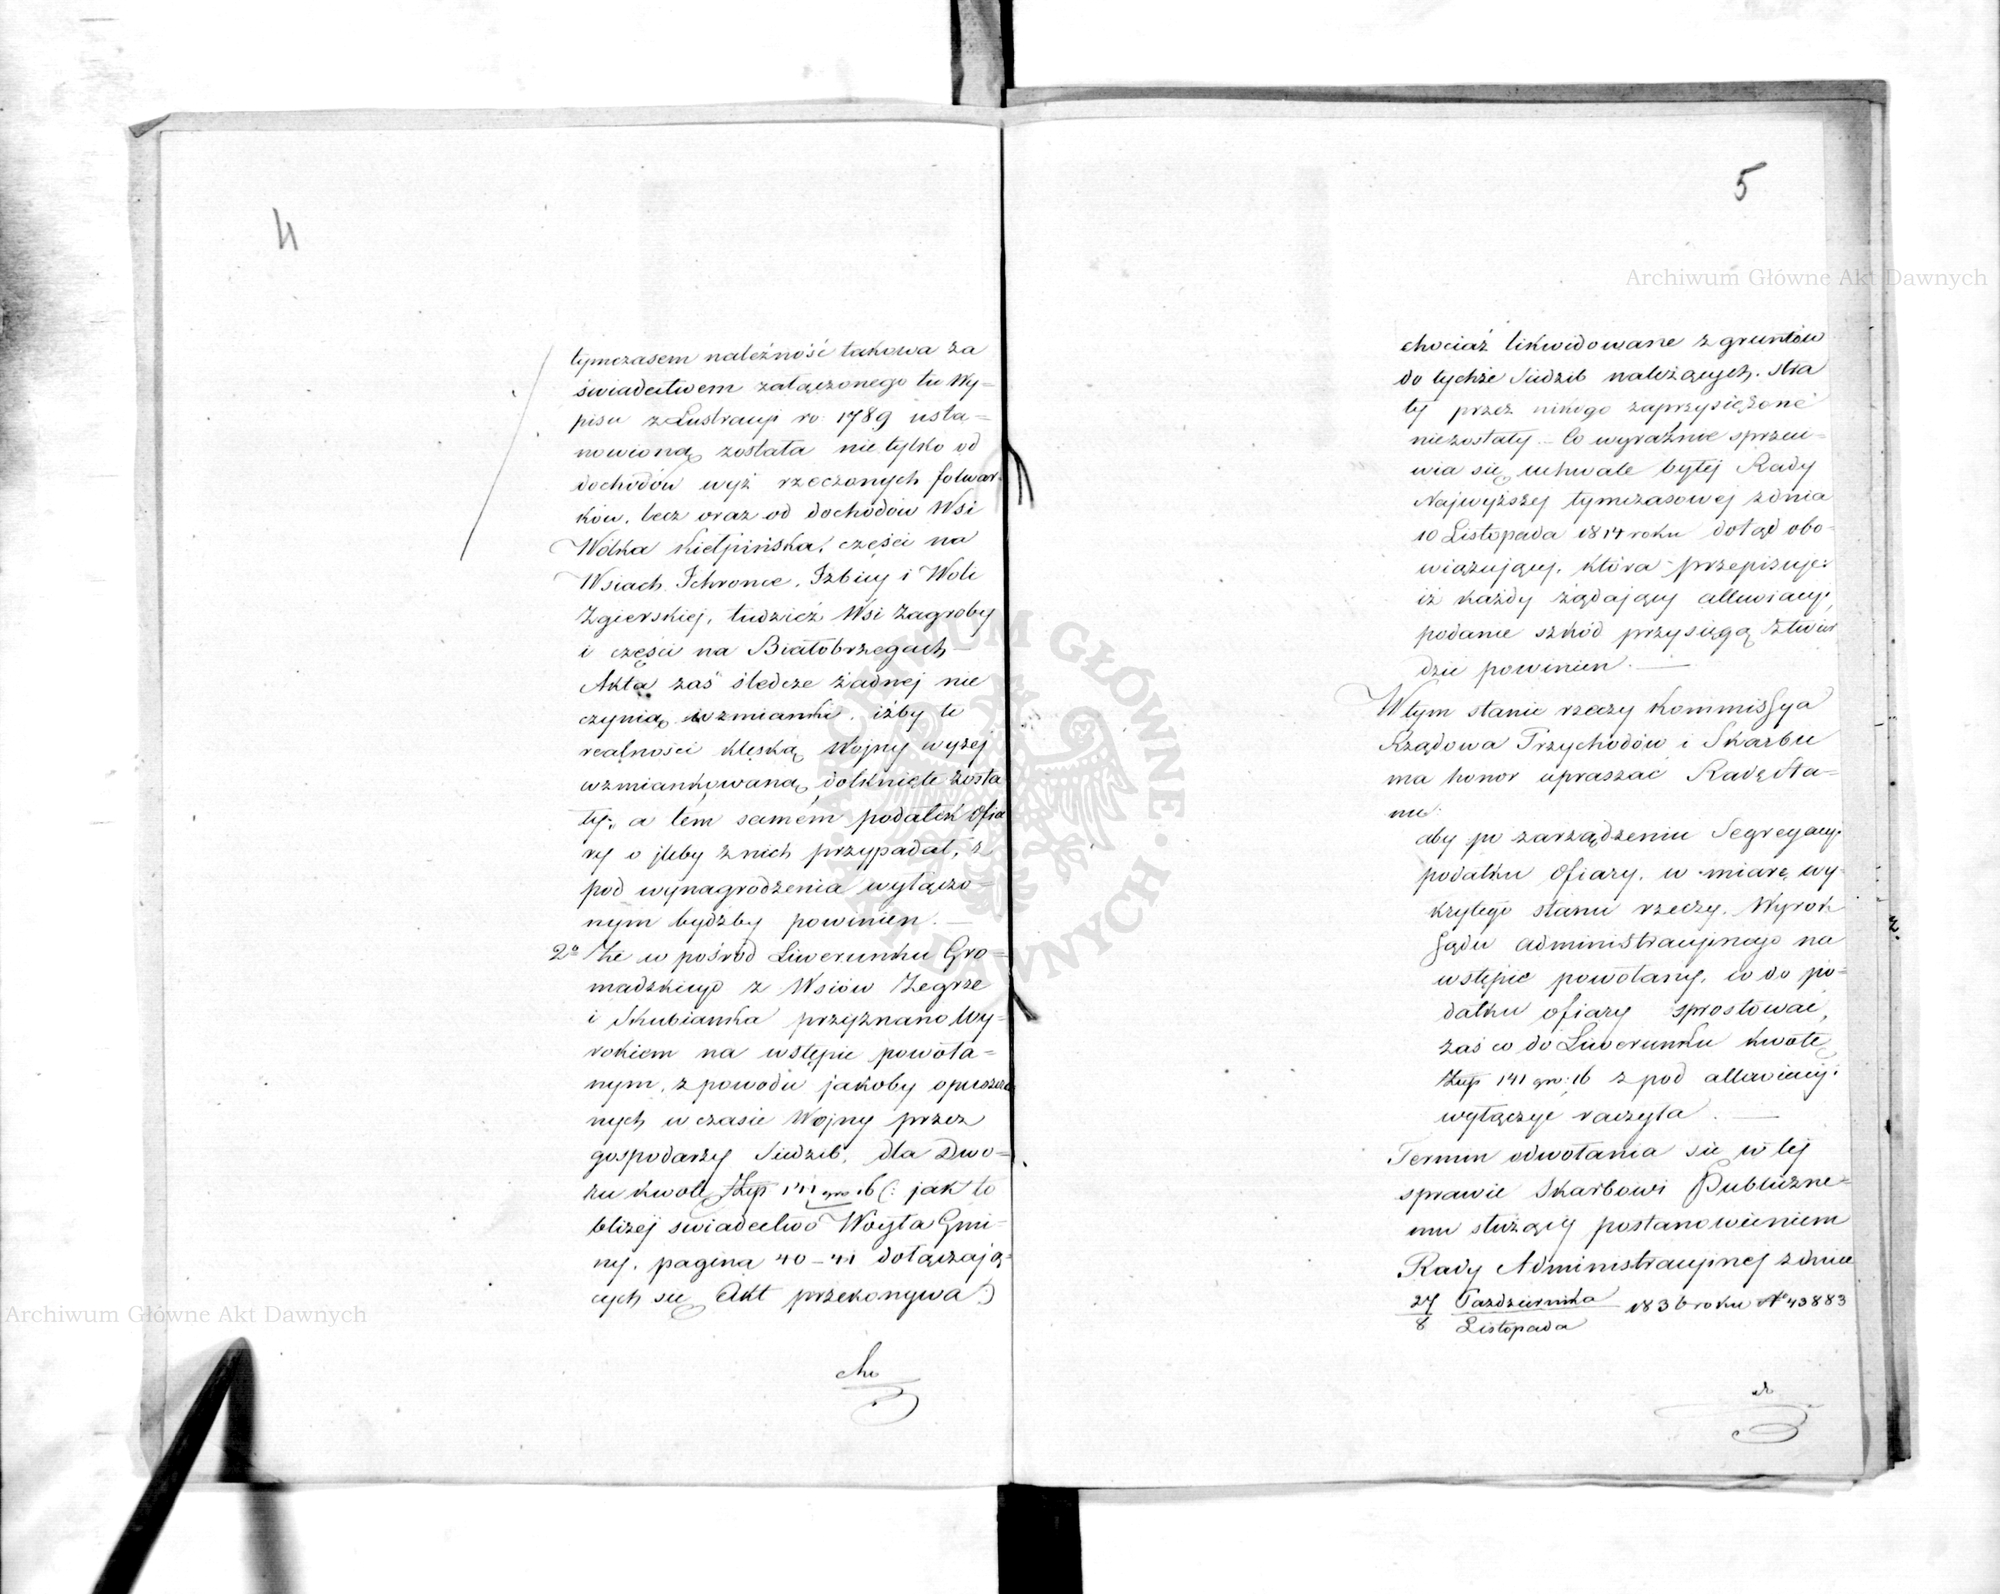 4
tymczasem należność takowa za
świadectwem załączonego tu Wy-
pisu z Lustracyi ro: 1789 usta-
nowioną została nie tylko od
dochodów wyż rzeczonych folwar-
ków, lecz oraz od dochodów Wsi
Wólka Kiełpińska, części na
Wsiach Ichronce, Izbicy i Woli
Zgierskiej, tudzież Wsi Zagroby
i części na Białobrzegach —
Akta zaś śledcze żadnej nie
czynią wzmianki, iżby te
realności klęską Wojny wyżej
wzmiankowaną, dotknięte zosta
ły, a tem samém podatek Ofia
ry o jleby z nich przypadał, z
pod wynagrodzenia wyłączo-
nym bydźby powinien. —
2º Że w pośród Liwerunku Gro-
madzkiego z Wsiów Zegrze
i Skubianka przyznano Wy-
rokiem na wstępie powoła-
nym, z powodu jakoby opuszczo
nych w czasie Wojny przez
gospodarzy Siedzib, dla Dwo-
ru kwotę Złp 141 gro 16 (: jak to
bliżej świadectwo Woyta Gmi-
ny, pagina 40–41 dołączają-
cych się Akt przekonywa :)
cho
5
chociaż likwidowane z gruntów
do tychże Siedzib należących, stra
ty przez nikogo zaprzysiężone
niezostały — Co wyraźnie sprzeci-
wia się uchwale byłej Rady
Najwyższej tymczasowej z dnia
10 Listopada 1814 roku dotąd obo-
wiązującej, która przepisuje:
iż każdy żądający alluwiacyi,
podanie szkód przysięgą stwier
dzić powinien. —
W tym stanie rzeczy Kommissya
Rządowa Przychodów i Skarbu
ma honor upraszać Radę Sta-
nu:
aby po zarządzeniu Segregacyi
podatku Ofiary, w miarę wy-
krytego stanu rzeczy, Wyrok
Sądu Administracyjnego na
wstępie powołany, co do po-
datku ofiary sprostować,
zaś co do Liwerunku kwotę
Złp 141 gro: 16 z pod alluwiacyi
wyłączyć raczyła. —
Termin odwołania się w tej
sprawie Skarbowi Publiczne-
mu służący postanowieniem
Rady Administracyjnej z dnia
27/8 Października/Listopada 1836 roku Nº 43883
Archiwum Główne Akt Dawnych
Archiwum Główne Akt Dawnych
ARCHIWUM GŁÓWNE AKT DAWNYCH